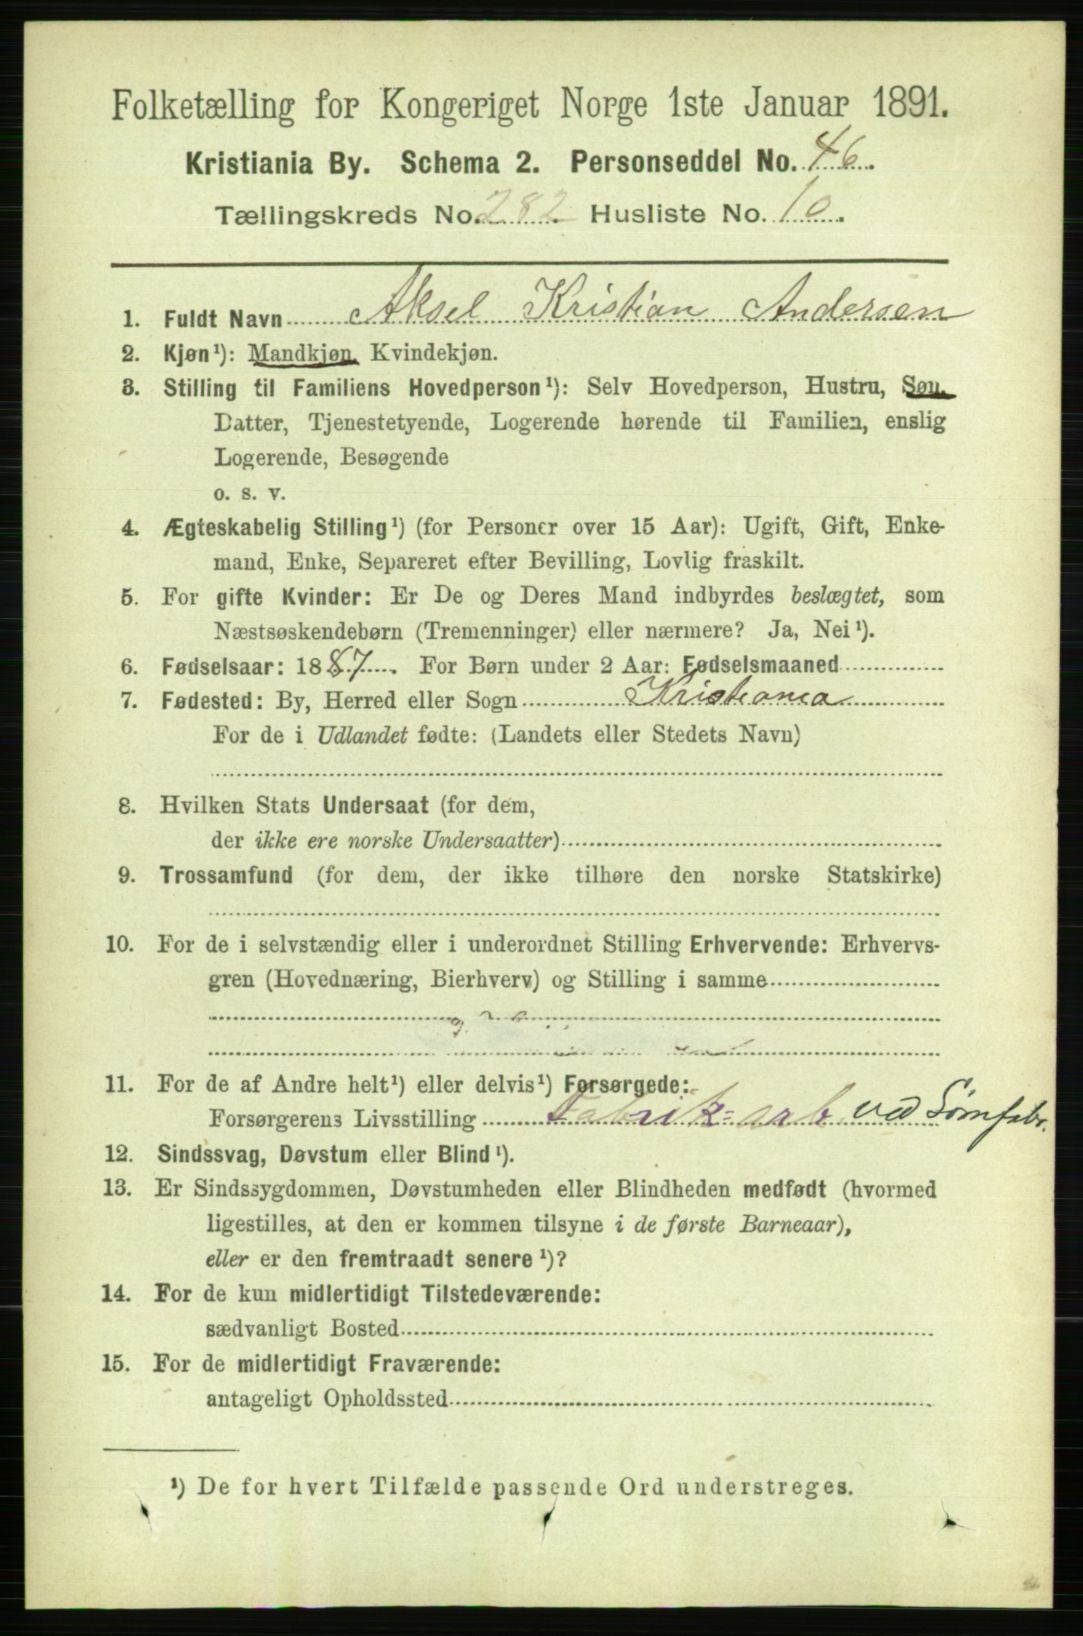 Folketælling for Kongeriget Norge 1ste Januar 1891.
Kristiania By. Schema 2. Personseddel No. 46.
Tællingskreds No. 282. Husliste No. 10.
1. Fuldt Navn Aksel Kristian Andersen
2. Kjøn¹): Mandkjøn, Kvindekjøn.
3. Stilling til Familiens Hovedperson¹): Selv Hovedperson, Hustru, Søn,
Datter, Tjenestetyende, Logerende hørende til Familien, enslig
Logerende, Besøgende
o. s. v.
4. Ægteskabelig Stilling¹) (for Personer over 15 Aar): Ugift, Gift, Enke-
mand, Enke, Separeret efter Bevilling, Lovlig fraskilt.
5. For gifte Kvinder: Er De og Deres Mand indbyrdes beslægtet, som
Næstsøskendebørn (Tremenninger) eller nærmere? Ja, Nei¹).
6. Fødselsaar: 1887. For Børn under 2 Aar: Fødselsmaaned
7. Fødested: By, Herred eller Sogn Kristiania
For de i Udlandet fødte: (Landets eller Stedets Navn)
8. Hvilken Stats Undersaat (for dem,
der ikke ere norske Undersaatter)
9. Trossamfund (for dem, der ikke tilhøre den norske Statskirke)
10. For de i selvstændig eller i underordnet Stilling Erhvervende: Erhvervs-
gren (Hovednæring, Bierhverv) og Stilling i samme
11. For de af Andre helt¹) eller delvis¹) Forsørgede:
Forsørgerens Livsstilling Fabrik=arb ved Sømfabr.
12. Sindssvag, Døvstum eller Blind¹).
13. Er Sindssygdommen, Døvstumheden eller Blindheden medfødt (hvormed
ligestilles, at den er kommen tilsyne i de første Barneaar),
eller er den fremtraadt senere¹)?
14. For de kun midlertidigt Tilstedeværende:
sædvanligt Bosted
15. For de midlertidigt Fraværende:
antageligt Opholdssted
¹) De for hvert Tilfælde passende Ord understreges.